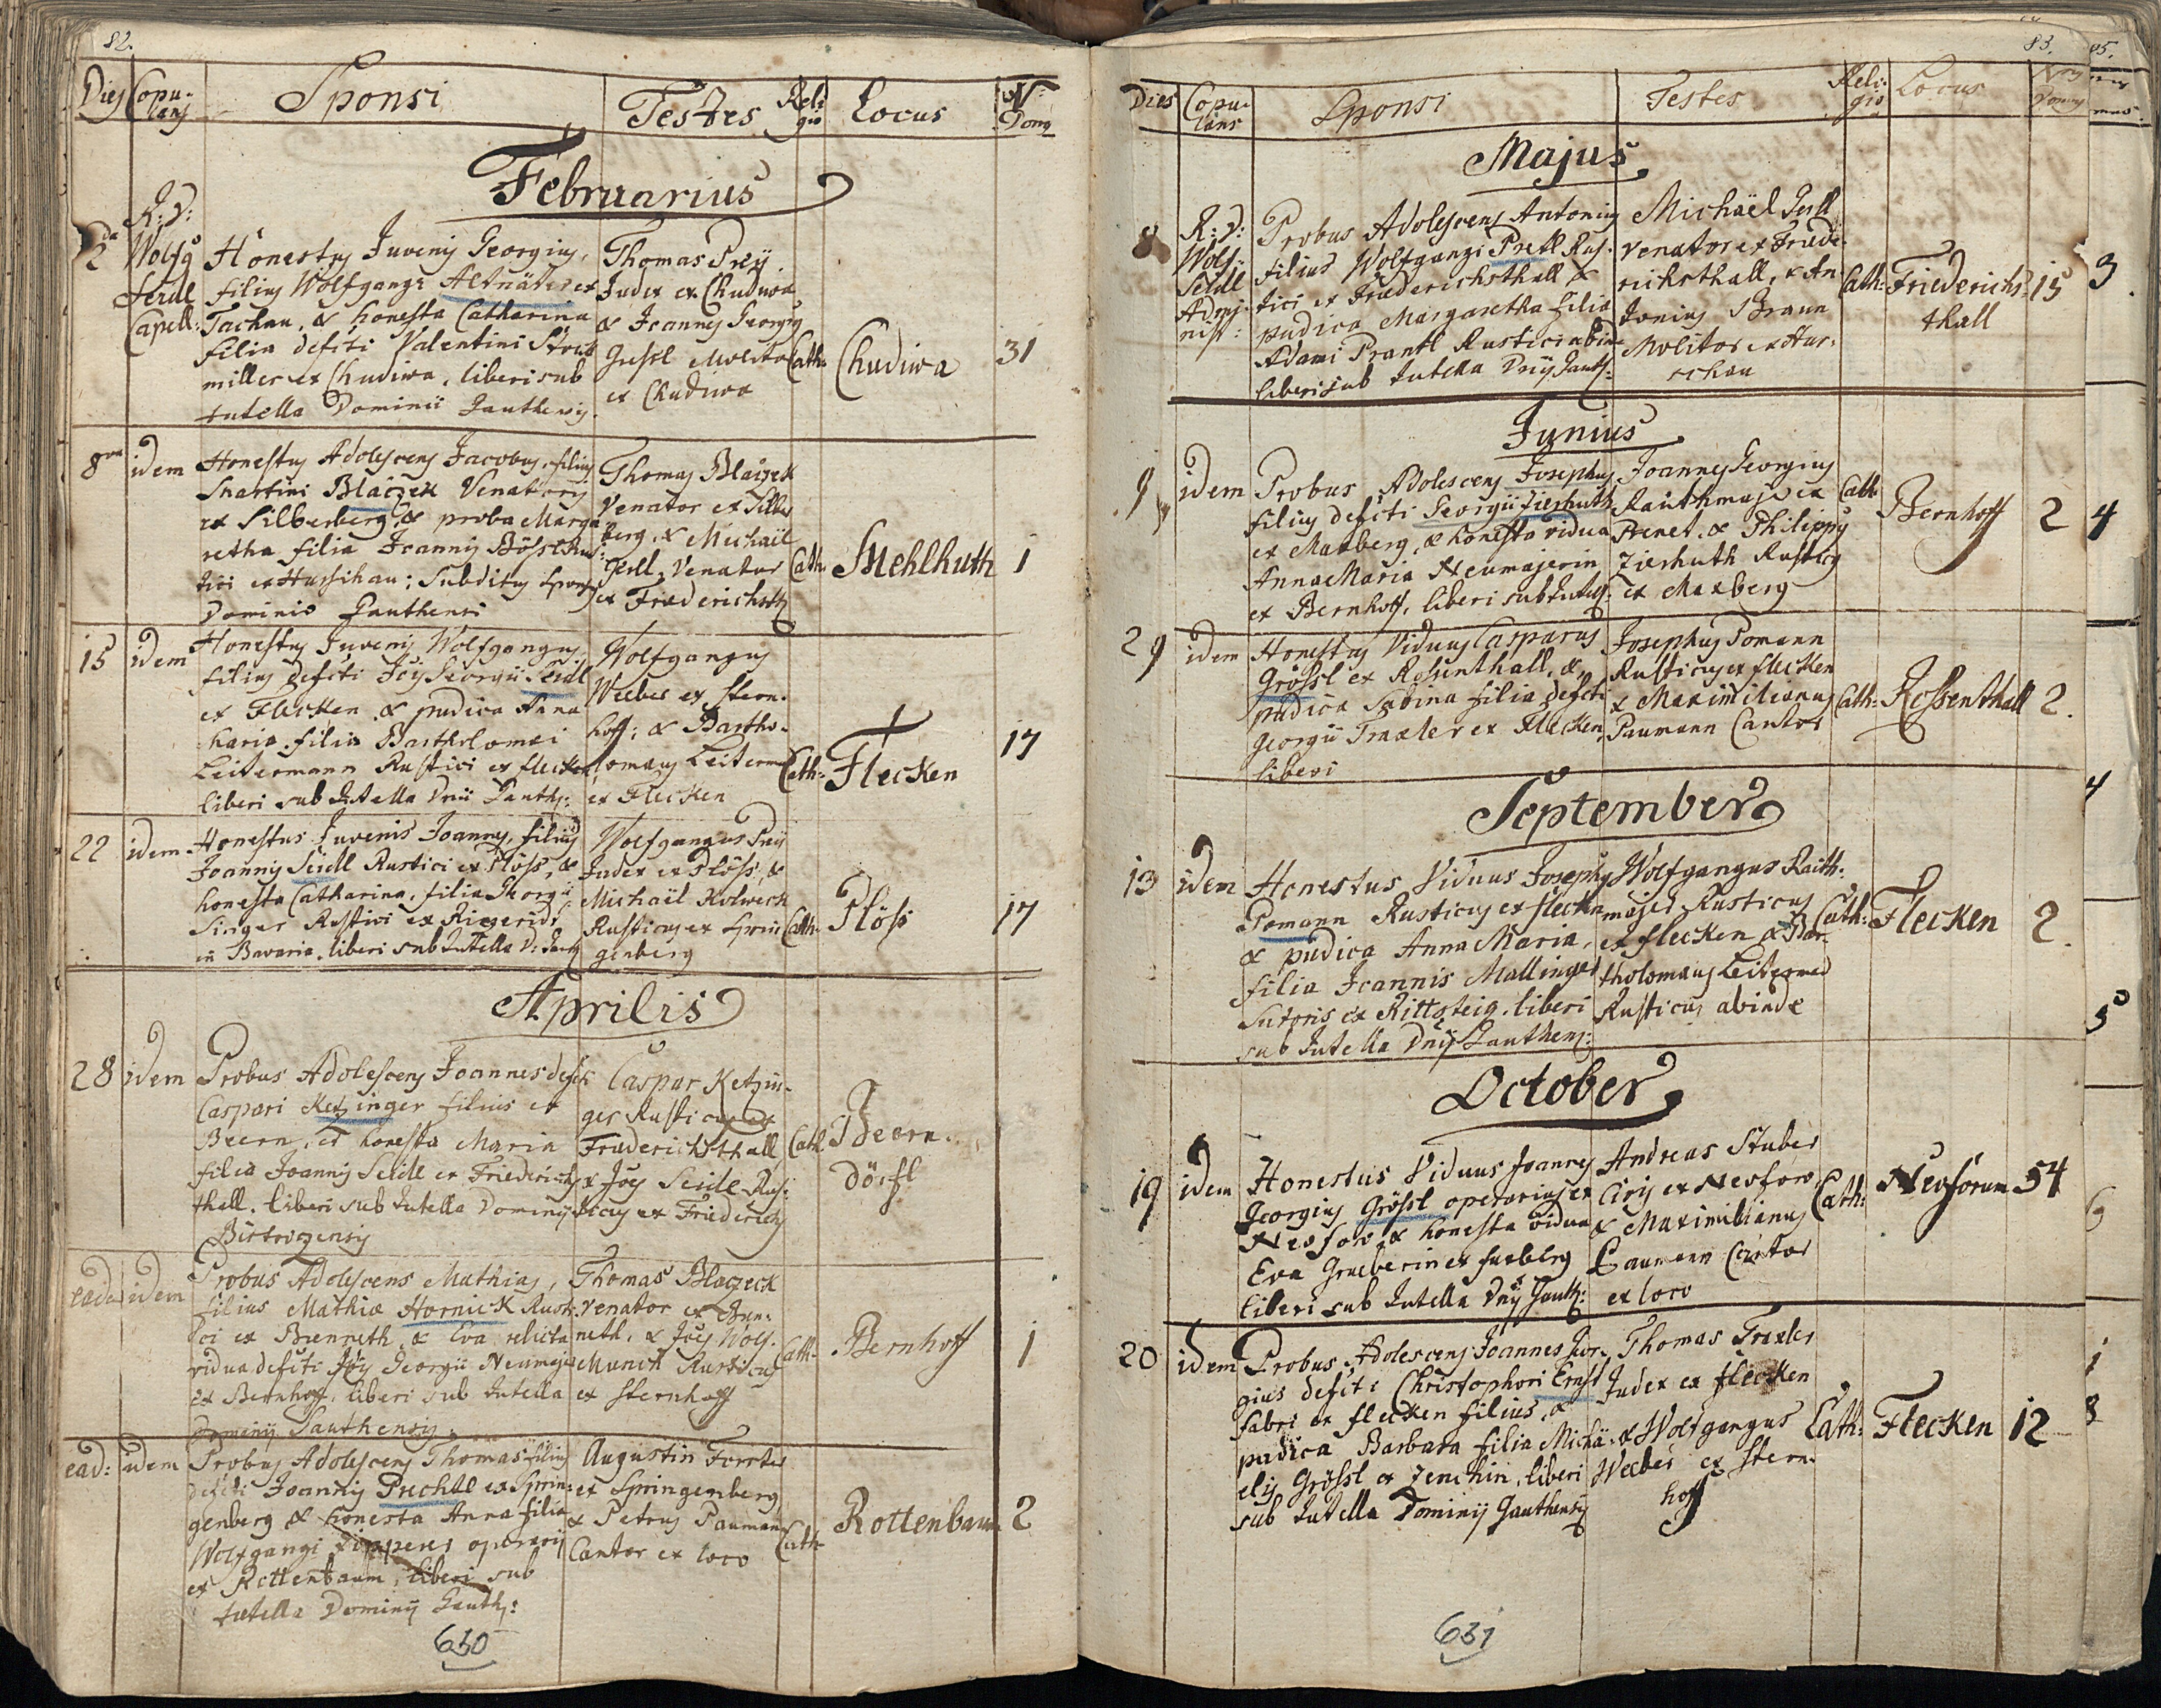 82.
Dies Copulans Sponsi Testes Religio Locus N: Domq
Februarius
2da R: D: Wolfg Seidl Capell:
Honestus Juvenis Georgius,
filius Wolfgangi Altnäder ex
Tachau, & honesta Catharina
filia defcti Valentini
miller ex Chudiwa, liberi sub
tutella Dominii Gauthensis.
Thomas Preÿ
Judex ex Chudiwa
& Joannes Georgig
Molitor
ex Chudiwa
Cath: Chudiwa 31
8va idem
Honestus Adolescens Jacobus, filius
Martini Blaczek Venatoris
ex Silberberg, & proba Marga
retha filia Joannis Rus-
tici ex ; Subditus Sponsus
Dominio Gauthensi
Thomas Blaczek
Venator ex Silber
berg, & Michaël
Venator
ex Friederichsth
Cath: Mehlhuth 1
15 idem
Honestus Juvenis Wolfgangus,
filius defcti Jois Georgii Seidl
ex Flecken & pudica Anna
Maria filia Bartholomæi
Leitermann Rustici ex Flecken
liberi sub Tutella Dnii Gauth:
Wolfgangus
Weeber ex Stern-
hoff: & Bartho-
lomæus Leiterm
ex Flecken
Cath: Flecken 17
22 idem
Honestus Juvenis Joannes, filius
Joannis Seidl Rustici ex Plöss, &
honesta Catharina, filia Georgii
Singer Rustici ex
in Bavaria, liberi sub Tutella D: Gauth
Wolfgangus Preÿ
Judex ex Plöss, &
Michaël Kolweck
Rusticus ex Sprin
genberg
Cath: Plöss 17
Aprilis
28 idem
Probus Adolescens Joannes defcti
Caspari Ketzinger filius ex
Beern, et honesta Maria
filia Joannis Seidl ex Friederichs
thall, liberi sub Tutella Dominij
Bistrizensis
Caspar Ketzin-
ger Rusticus ex
Friederichsthall
& Jois Seidl Rus-
ticus ex Friederichs
Cath Beern-
dörfl
eade idem
Probus Adolescens Mathias,
filius Mathiæ Hornick Rusti-
ci ex Brenneth, & Eva relicta
vidua defcti Jois Georgii Neumajer
ex Bernhoff, liberi sub Tutella
Dominij Gauthensis.
Thomas Blaczeck
venator ex Bren-
neth, & Jois Wolf-
Munch Rusticus
ex Sternhoff
Cath: Bernhoff 1
ead: idem
Probus Adolescens Thomas filius
defcti Joannis Prechtl ex Sprin-
genberg & honesta Anna filia
Wolfgangi Zipperer operarij
ex Rottenbaum, liberi sub
tutella Dominij Gauth:
Augustin Forster
ex Springenberg
& Petrus Paumann
Cantor ex loco
Cath Rottenbaum 2
630
83.
Dies Copulans Sponsi Testes Religio Locus Nrus Domus
Majus
8 R: D: Wolf: Seidl Administ:
Probus Adolescens Antonius
filius Wolfgangi Pretl Rus-
tici ex Friederichsthall &
pudica Margaretha filia
Adami Prantl Rustici abinde
liberi sub Tutella Dnij Gauth:
Michaël
Venator ex Friede-
richsthall, & An-
tonius Braun
Molitor ex Hur-
schau
Cath: Friederichs-
thall 15
Junius
9 idem
Probus Adolescens Josephus
filius defcti Georgii Zierhuth
ex Maxberg, & honesta vidua
Anna Maria Neumajerin
ex Bernhoff, liberi sub Tutell:
Joannes Georgius
Raithmajer ex
Prenet, & Philippus
Zierhuth Rusticus
ex Maxberg
Cath Bernhoff 2
29 idem
Honestus Viduus Casparus
Grössl ex Rosenthall, &
pudica Sabina filia defcti
Georgii Traxler ex Flecken,
liberi
Josephus Pomann
Rusticus ex Flecken
& Maximilianus
Paumann Cantor
Cath: Rossenthall 2.
September
13 idem
Honestus Viduus Josephus
Pomann Rusticus ex Flecken
& pudica Anna Maria,
filia Joannis Mallinger
Sutoris ex Rittsteig, liberi
sub Tutella Dnij Gauthens:
Wolfgangus Raith-
majer Rusticus
ex Flecken & Bar-
tholomæus Leiterma
Rusticus abinde
Cath: Flecken 2.
October
19 idem
Honestus Viduus Joannes
Georgius Grössl operarius ex
Neoforo & honesta vidua
Eva Grueberin ex
liberi sub Tutella Dnij Gauth:
Andreas Stuber
Civis ex Neoforo
& Maximilianus
Paumann Cantor
ex loco
Cath: Neoforum 54
20 idem
Probus Adolescens Joannes Geor-
gius defcti Christophori Ernst
Fabri ex Flecken filius, &
pudica Barbara filia Micha-
elis Grössl ex , liberi
sub Tutella Dominij Gauthensis
Thomas Traxler
Judex ex Flecken
& Wolfgangus
Weeber ex Stern-
hoff
Cath: Flecken 12
631